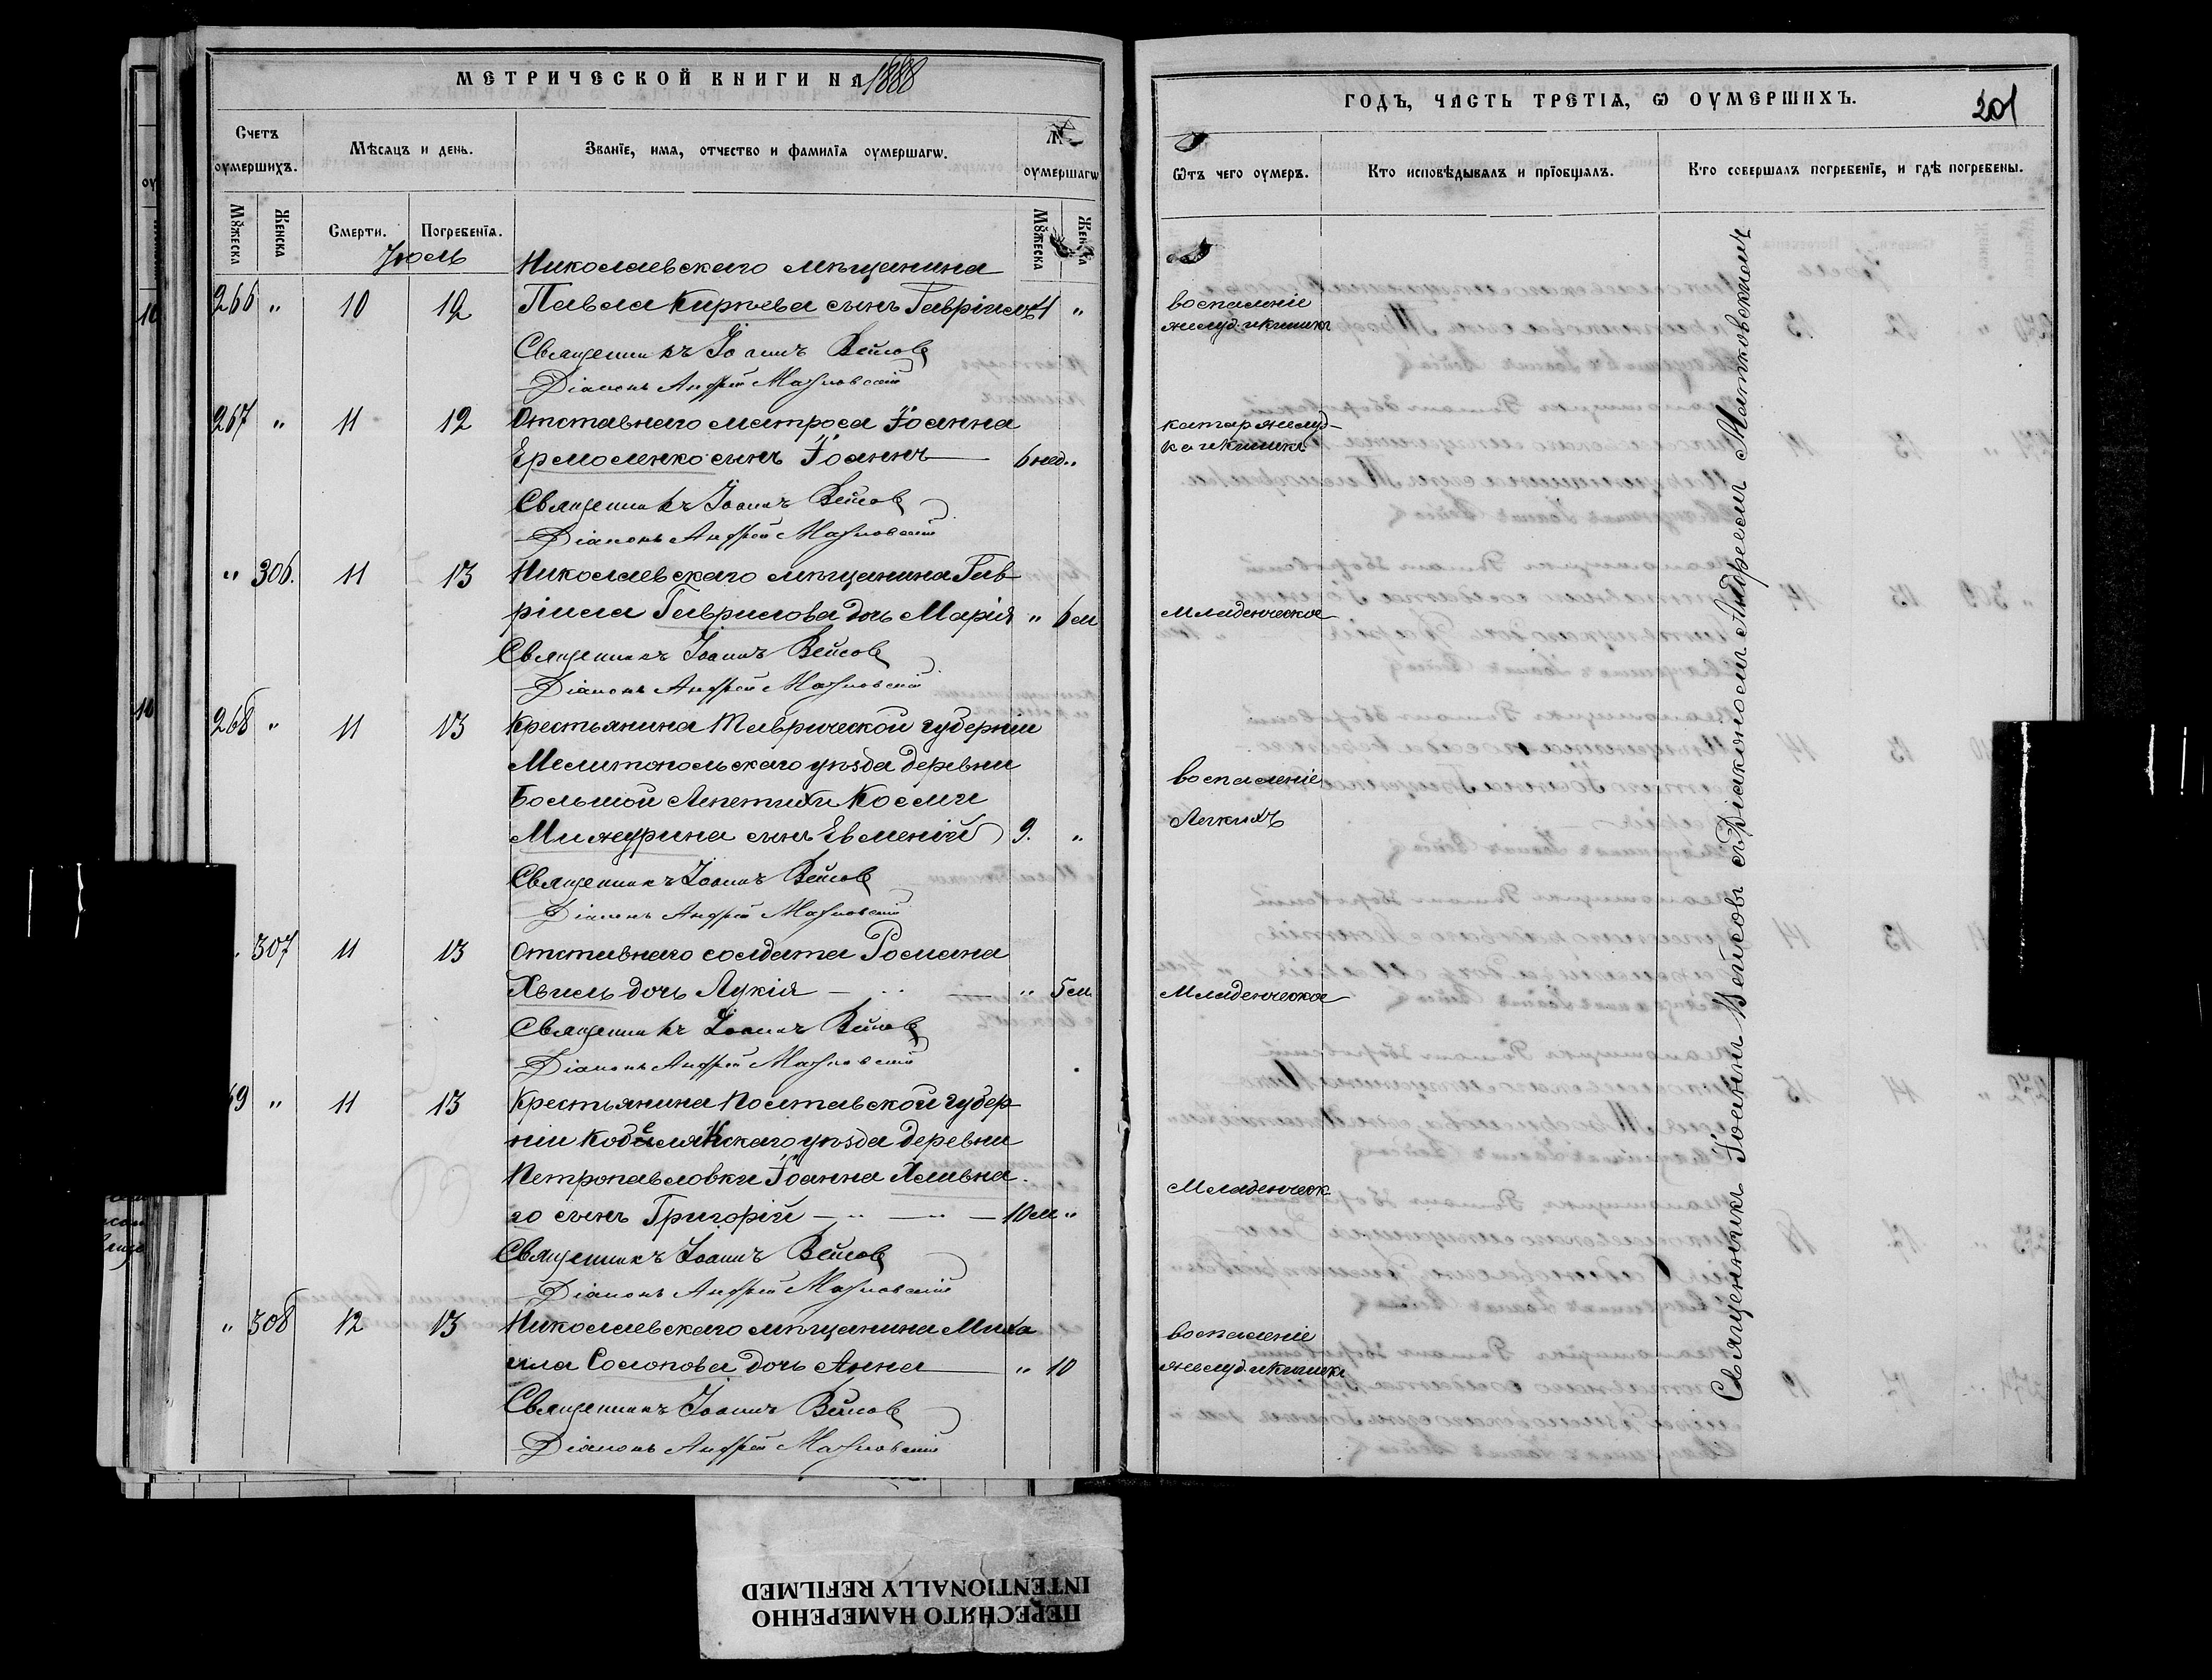 МЕТРИЧЕСКОЙ КНИГИ НА 1888
Счетъ оумершихъ.
Мѣсяцъ и день.
Званіе, имя, отчество и фамилія оумершагѡ.
оумершагѡ
Мꙋжеска
Женска
Смерти.
Погребенія.
Мꙋжеска
Іюль
Николаевскаго мѣщанина
266 " 10 12 Павла Кирѣева сынъ Гавріилъ 1 "
Священникъ Іоаннъ Вейсовъ
Діаконъ Андрей Матковскій
267 " 11 12 Отставнаго матроса Іоанна
Ермоленко сынъ Іоаннъ 6 нед. "
Священникъ Іоаннъ Вейсовъ
Діаконъ Андрей Матковскій
" 306. 11 13 Николаевскаго мѣщанина Гав-
ріила Гаврилова дочь Марія " 6 м
Священникъ Іоаннъ Вейсовъ
Діаконъ Андрей Матковскій
268 " 11 13 Крестьянина Таврической губерніи
Мелитопольскаго уѣзда деревни
Большой Лепетихи Космы
Мижурина сынъ Евменій 9. "
Священникъ Іоаннъ Вейсовъ
Діаконъ Андрей Матковскій
307 11 13 Отставнаго солдата Романа
дочь Лукія " 5 м.
Священникъ Іоаннъ Вейсовъ
Діаконъ Андрей Матковскій
69 " 11 13 Крестьянина Полтавской губер-
ніи Кобелякскаго уѣзда деревни
Петропавловки Іоанна
го сынъ Григорій 10 м "
Священникъ Іоаннъ Вейсовъ
Діаконъ Андрей Матковскій
" 308 12 13 Николаевскаго мѣщанина Миха
ила Солопова дочь Анна " 10
Священникъ Іоаннъ Вейсовъ
Діаконъ Андрей Матковскій
ГОДЪ, ЧАСТЬ ТРЕТІЯ, Ѡ ОУМЕРШИХЪ.
201
Ѿтъ чего оумеръ.
Кто исповѣдывалъ и пріобщалъ.
Кто совершалъ погребеніе, и гдѣ погребены.
воспаленіе
желуд. и кишокъ
катар желуд-
ка и кишокъ
Младенческое
воспаленіе
Легкихъ
Младенческое
Младенческ
воспаленіе
желуд. и кишокъ
Священникъ Іоаннъ Вейсовъ съ Діакономъ Андреемъ Матковскимъ
ПЕРЕСНЯТО НАМЕРЕННО
INTENTIONALLY REFILMED